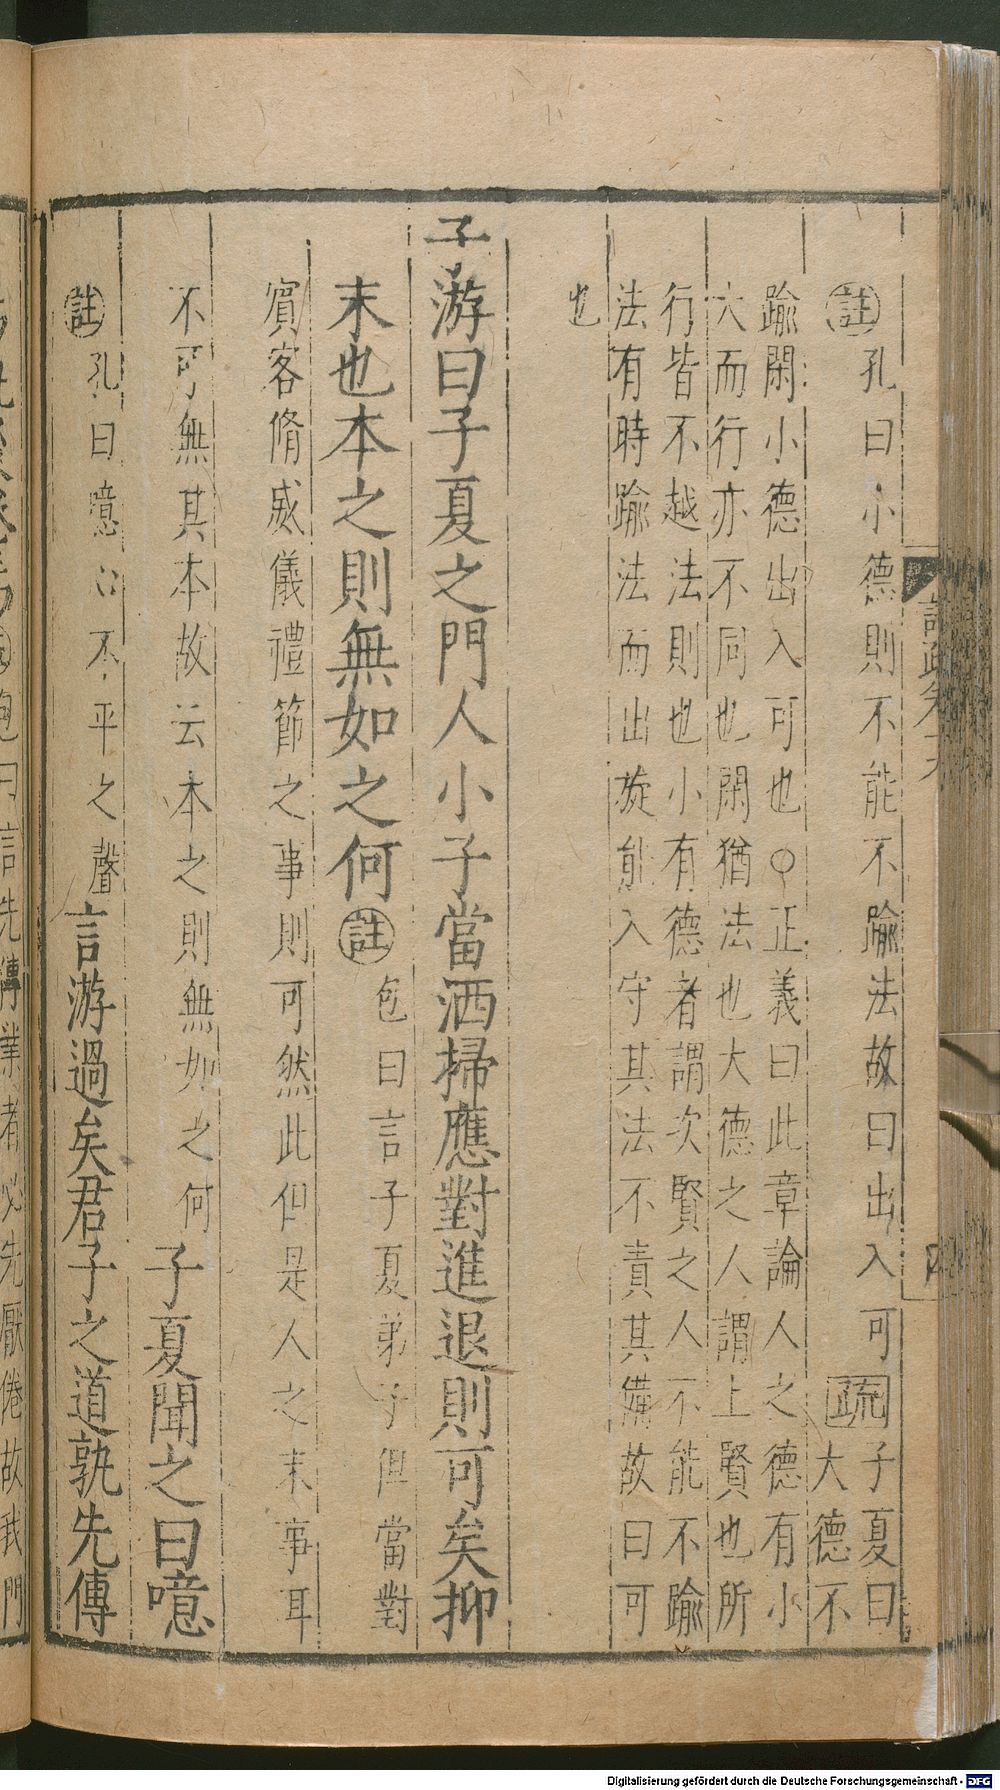 註孔曰小德則不能不踰法故曰出入可疏子夏曰大德不
踰閑小德出入可也○正義曰此章論人之德有小
大而行亦不同也閑猶法也大德之人謂上賢也所
行皆不越法則也小有德者謂次賢之人不能不踰
法有時踰法而出旋能入守其法不責其備故曰可
也
子游曰子夏之門人小子當洒掃應對進退則可矣抑
末也本之則無如之何註包曰言子夏弟子但當對
賓客脩威儀禮節之事則可然此但是人之末事耳
不可無其本故云本之則無如之何子夏聞之曰噫
註孔曰噫心不平之聲言游過矣君子之道孰先傳
包曰言先傳業者必先厭倦故我門
註疏卷十九
Digitalisierung gefördert durch die Deutsche Forschungsgemeinschaft - DFG